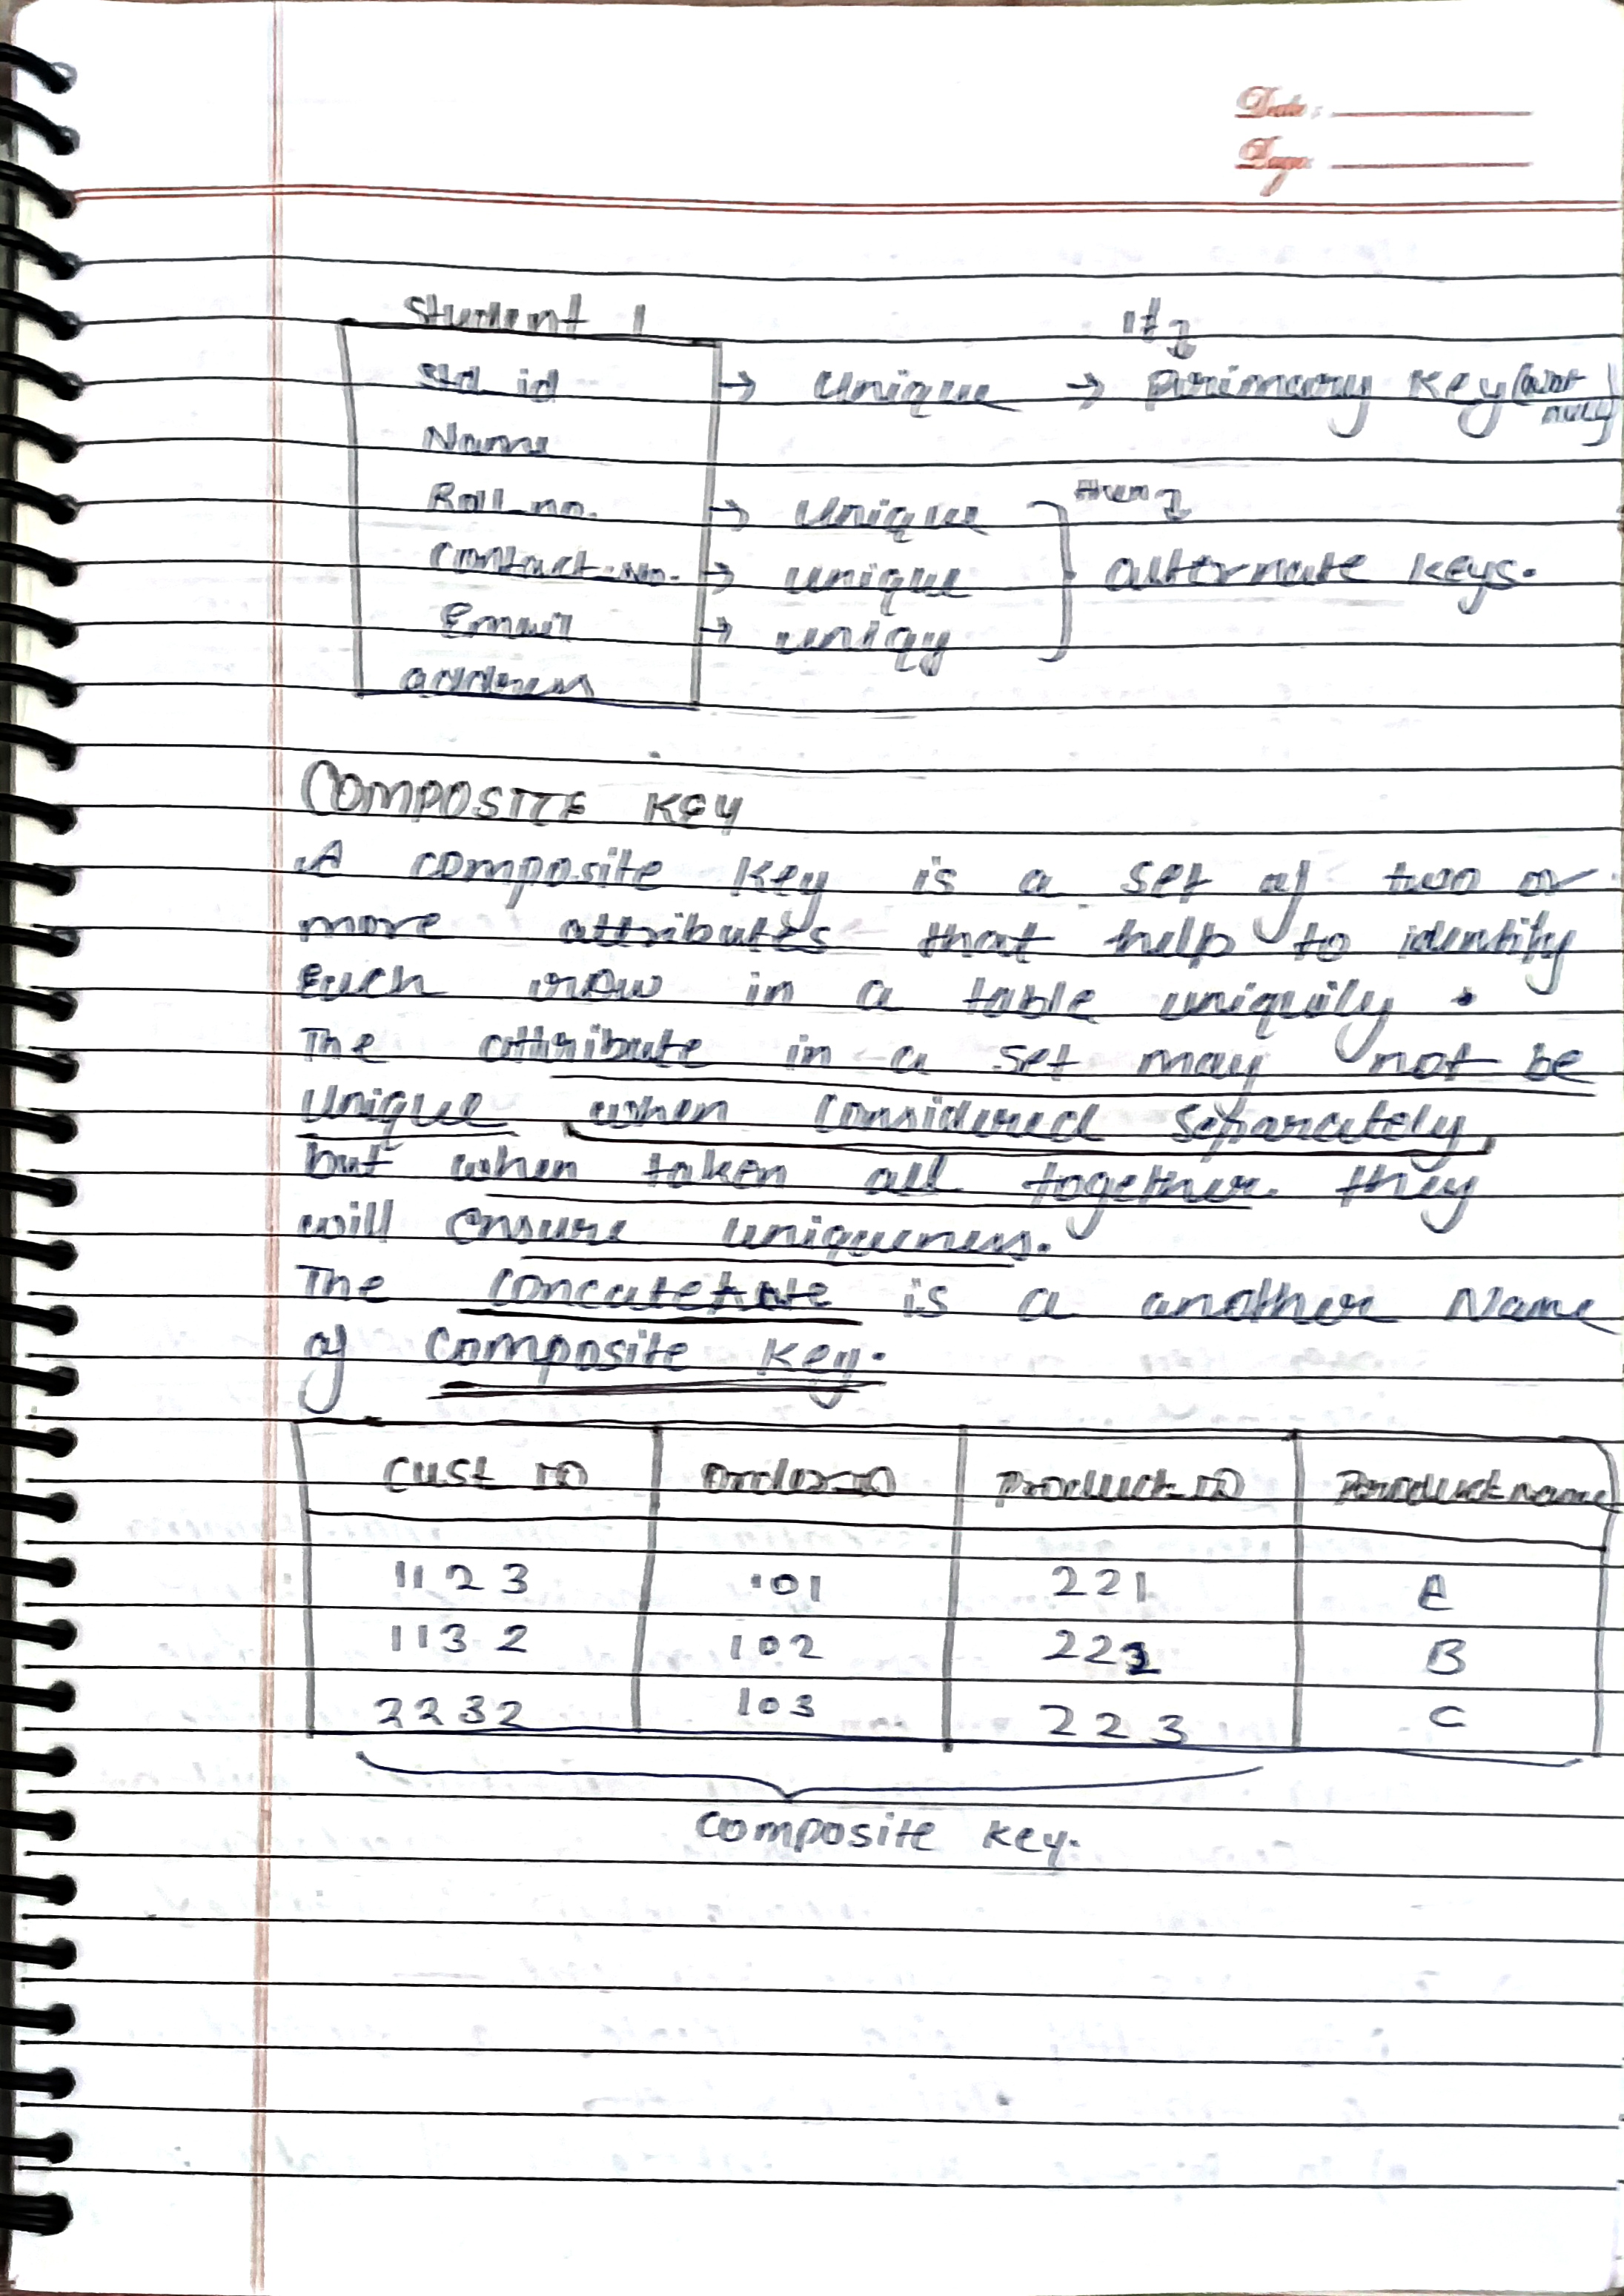 Date:
Page:
Student 1
Std id → Unique → If Primary Key (Not null)
Name
Roll no. → Unique then
Contact-No. → unique alternate keys.
Email → uniqy
address
COMPOSITE KEY
A composite key is a set of two or
more attributes that help to identify
Each row in a table uniquily.
The attribute in a set may not be
Unique when considered separately,
but when taken all together they
will ensure uniqueness.
The concatetate is a another Name
of Composite Key.
Cust_ID Order_ID Product_ID Product name
1123 101 221 A
1132 102 222 B
2232 103 223 C
composite key.